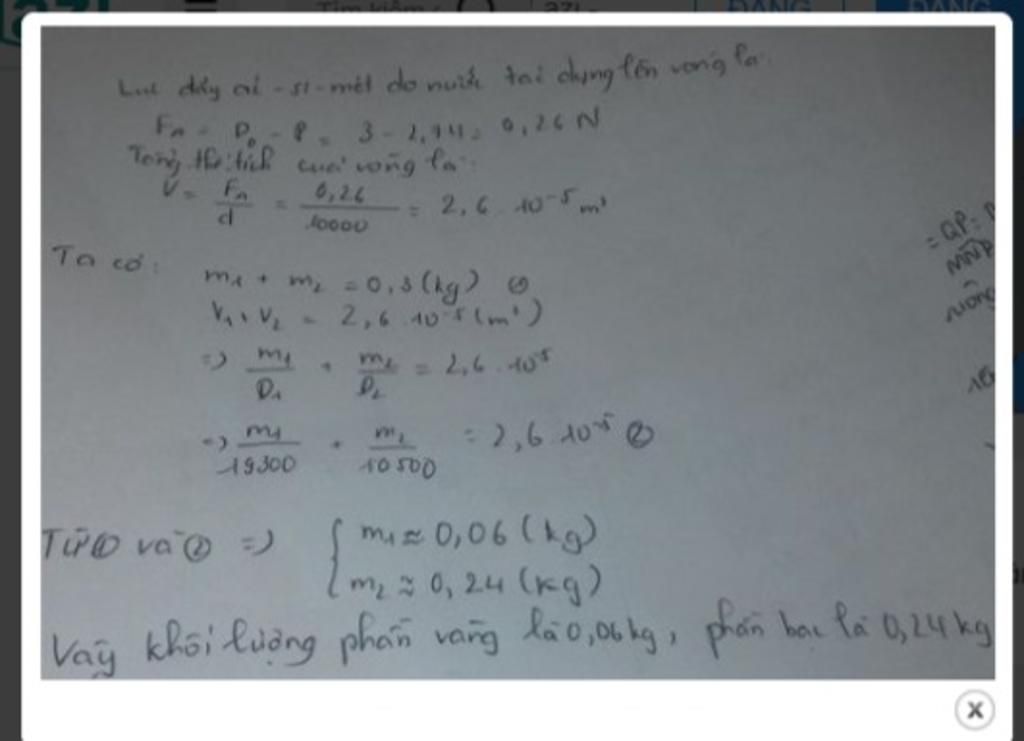 Tìm kiếm
ĐĂNG
ĐĂNG
Lực đẩy ai-si-mét do nước tai dụng lên vong là:
F_A = P_0 - P = 3 - 2,74 = 0,26 N
Tong thể tích cuả vong là:
V = F_A / d = 0,26 / 10000 = 2,6 . 10^-5 m³
Ta có:
m₁ + m₂ = 0,3 (kg) ①
V₁ + V₂ = 2,6 . 10^-5 (m³)
=> m₁ / D₁ + m₂ / D₂ = 2,6 . 10^-5
=> m₁ / 19300 + m₂ / 10500 = 2,6 . 10^-5 ②
Từ ① và ② => { m₁ ≈ 0,06 (kg)
m₂ ≈ 0,24 (kg)
Vậy khối lượng phần vàng là 0,06kg, phần bạc là 0,24 kg
= QP:
MNP
vuông
x